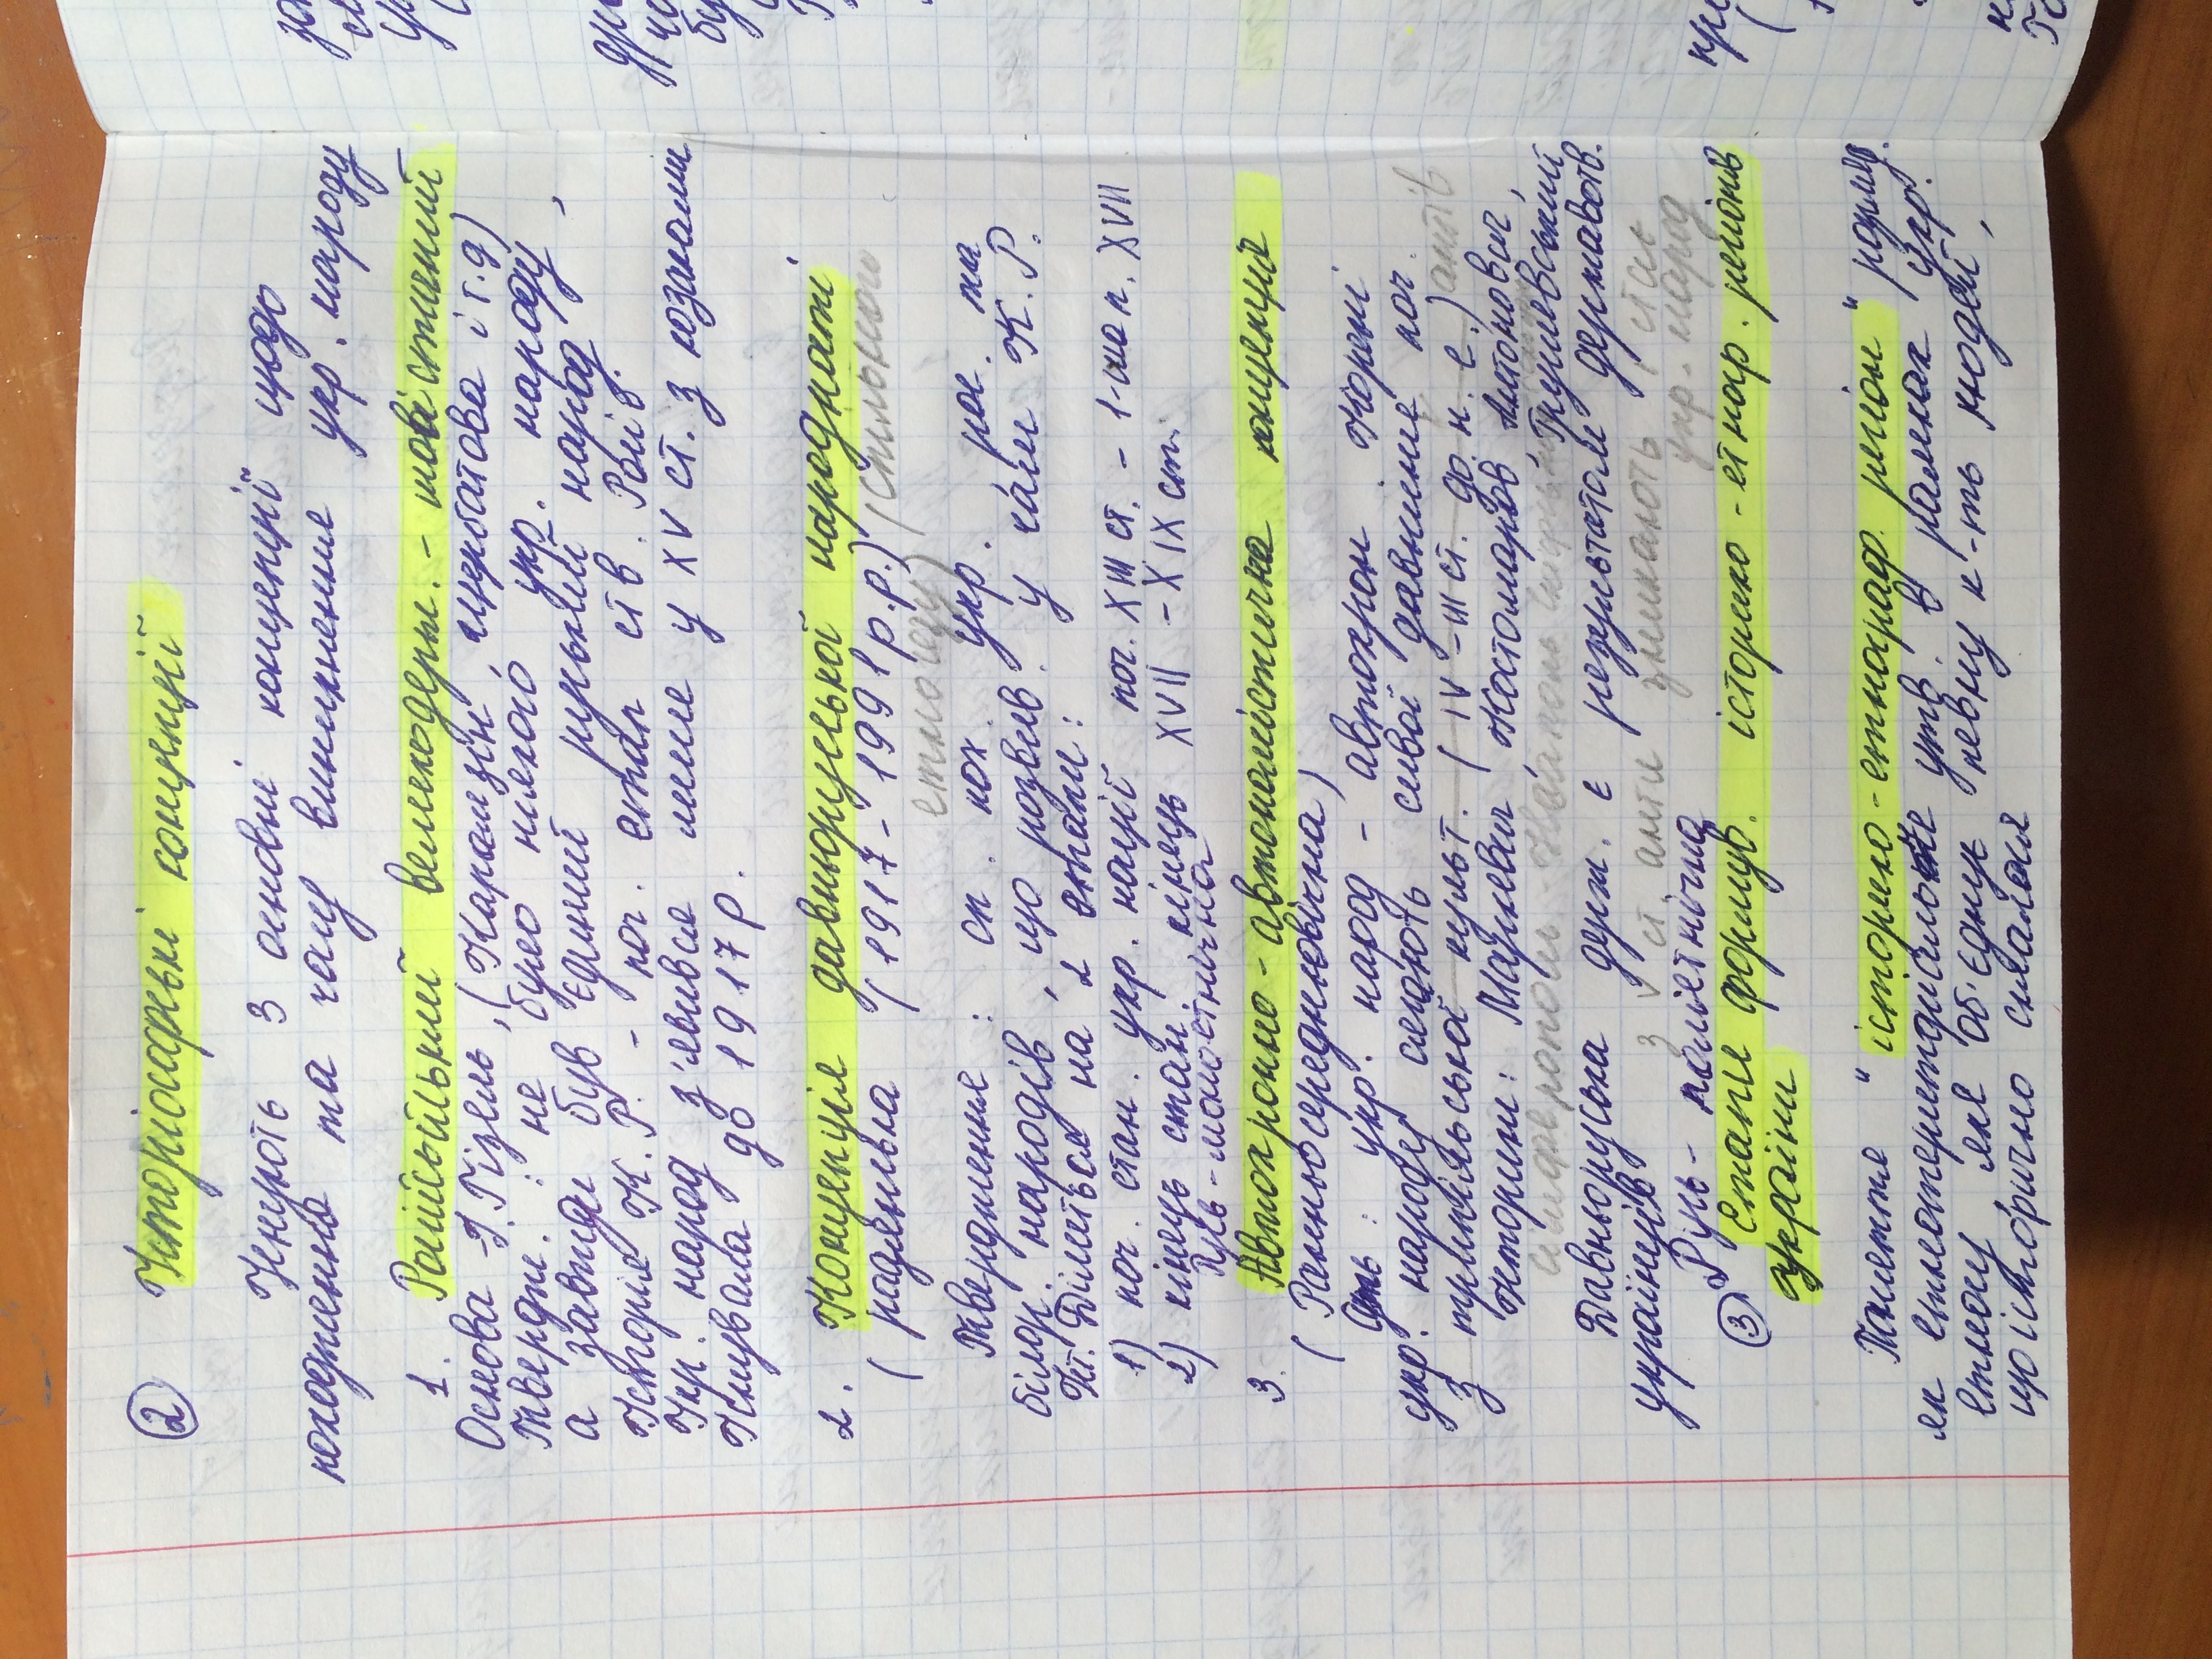 2 Історіософські концепції
Існують 3 основні концепції щодо
походження та часу виникнення укр. народу
1. Російський великодерж. - шовістичний
Основа - І. Гізель, (Карамзін, Щербатова і т.д)
Твердж. : не було ніякого укр. народу,
а завжди був єдиний руський народ
Історія К. Р. - поч. етап ств. Росії
Укр. народ з'явився лише у XV ст. з козаками
Існувала до 1917 р.
2. Концепція давньоруської народності
( радянська (1917 - 1991 р.р.) (спільного
етногезу)
Твердження : сп. пох. укр., рос. та
білор. народів, що розвив. у часи К. Р.
Іст. Ділиться на 2 етапи:
1) поч. стан. укр. нації поч. XIII ст. - 1-ша п. XVII
2) кінець стан. кінець XVII - XIX ст.
Русь - моноетнічна
3. Автохронно - автономістична концепція
( Ранньосередньовічна )
Суть : укр. народ - автохрон. Корені
укр. народу сягають сивої давнини поч.
з трипільської культ. ( IV - III ст. до. н. е.) антів
Історики: Маркевич, Костомаров, Антонович,
Сімферополь - Неаполь
Грушевський
Давньоруська держ. є результатом державотв.
українців
з V ст. анти зникають і стає
укр. народ
Русь - поліетнічна
3 Етапи формув. історико - етногр. регіонів
україни
Поняття " історико - етнограф. регіон "
як етнотериторіальне утв. в рамках укр.
етносу, яке об'єднує певну к-ть людей,
що історично склалося